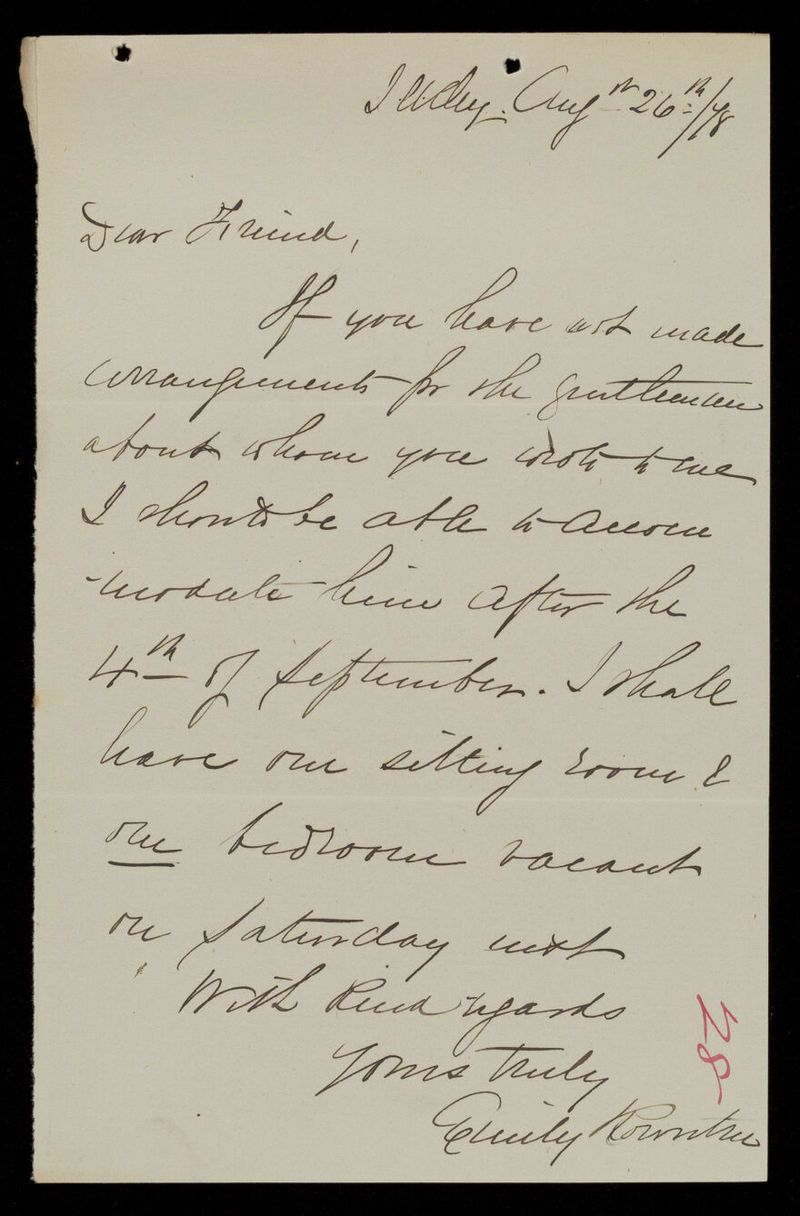 Ilkley. Augst 26th/78
Dear Friend,
If you have not made
arrangements for the gentleman
about whom you wrote to me
I should be able to accom
-modate him after the
4th of September. I shall
have one sitting room &
one bedroom vacant
on Saturday next
With kind regards
Yours truly
Emily Rowntree
28